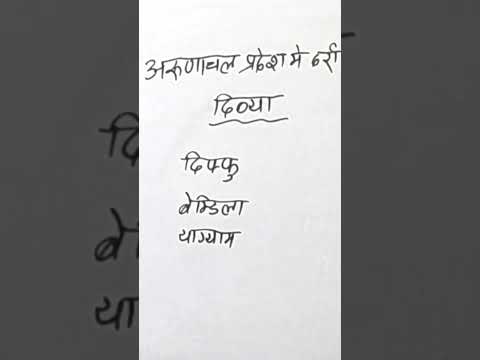 अरूणाचल प्रदेश मे दर्रा
दिव्या
दिफ्फु
बोमडिला
याग्याम